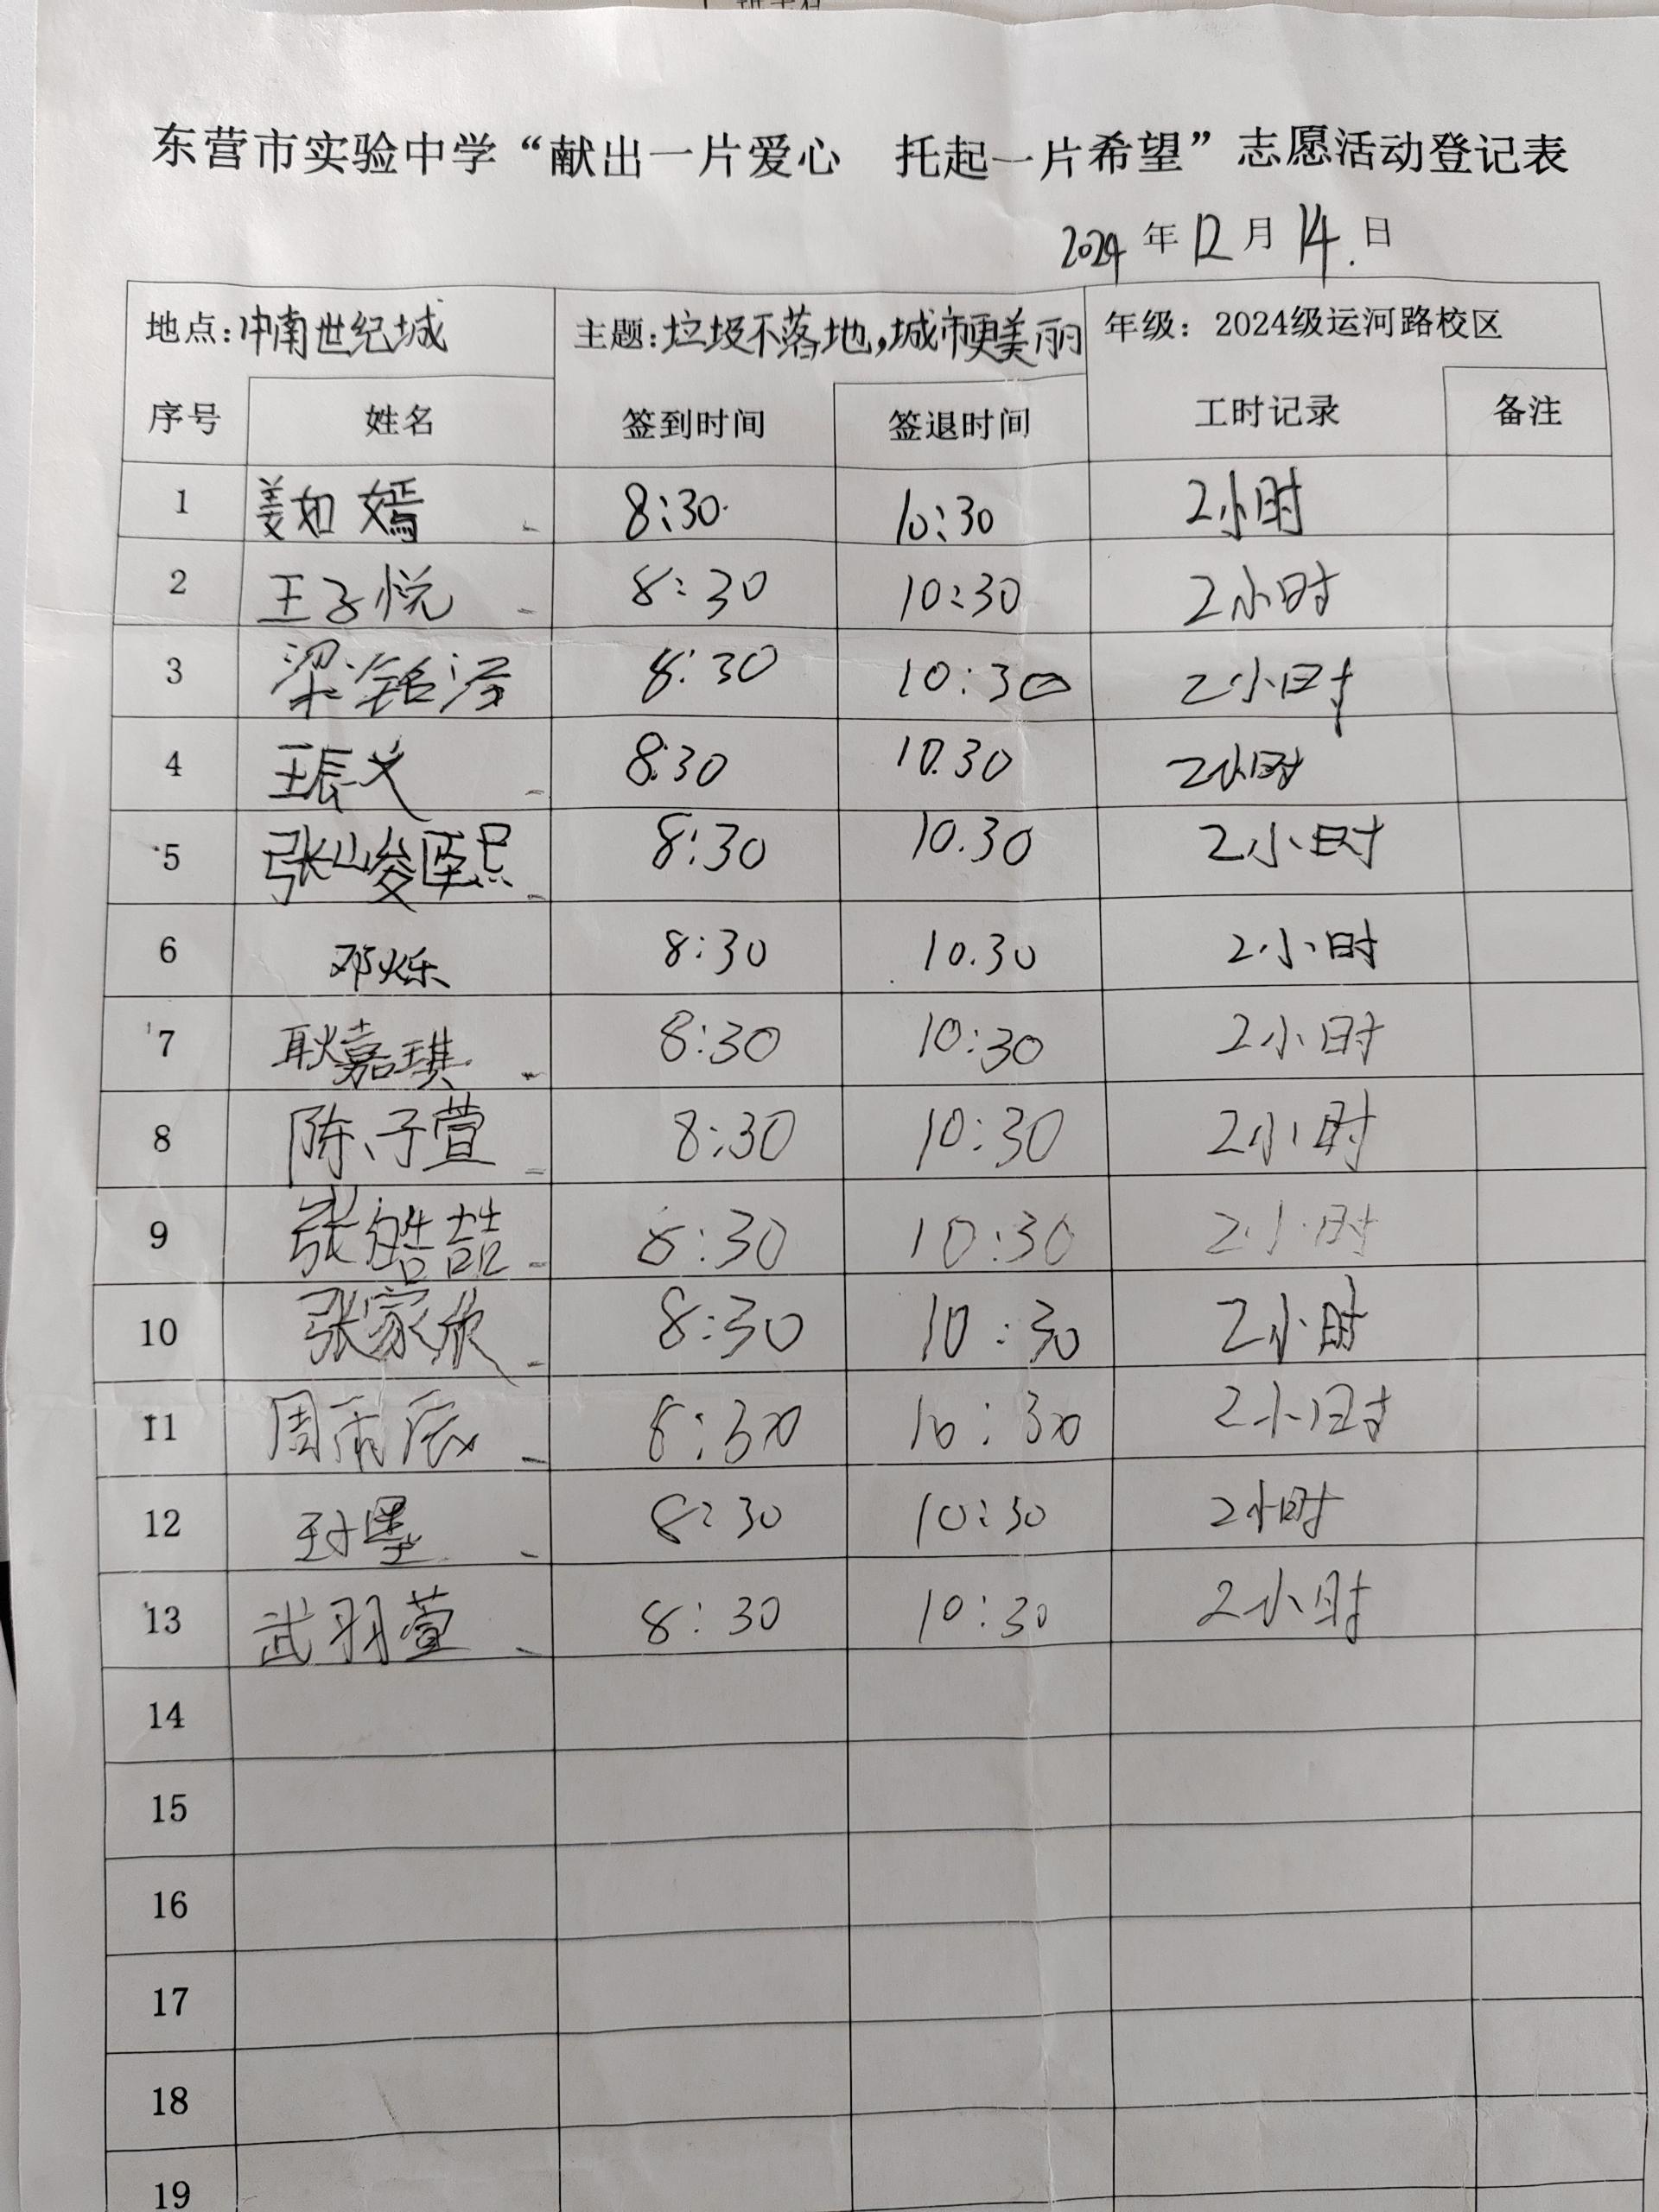 东营市实验中学“献出一片爱心 托起一片希望”志愿活动登记表
2024年12月14.日
地点:中南世纪城 主题:垃圾不落地,城市更美丽 年级：2024级运河路校区
序号 姓名 签到时间 签退时间 工时记录 备注
1 姜如嫣 8:30 10:30 2小时
2 王子悦 8:30 10:30 2小时
3 梁铭 8:30 10:30 2小时
4 王辰义 8:30 10.30 2小时
5 张山峻熙 8:30 10.30 2小时
6 邓烁 8:30 10.30 2小时
7 耿嘉琪 8:30 10:30 2小时
8 陈子萱 8:30 10:30 2小时
9 张皓喆 8:30 10:30 2小时
10 张家欣 8:30 10:30 2小时
11 周雨辰 8:30 10:30 2小时
12 8:30 10:30 2小时
13 武羽萱 8:30 10:30 2小时
14
15
16
17
18
19